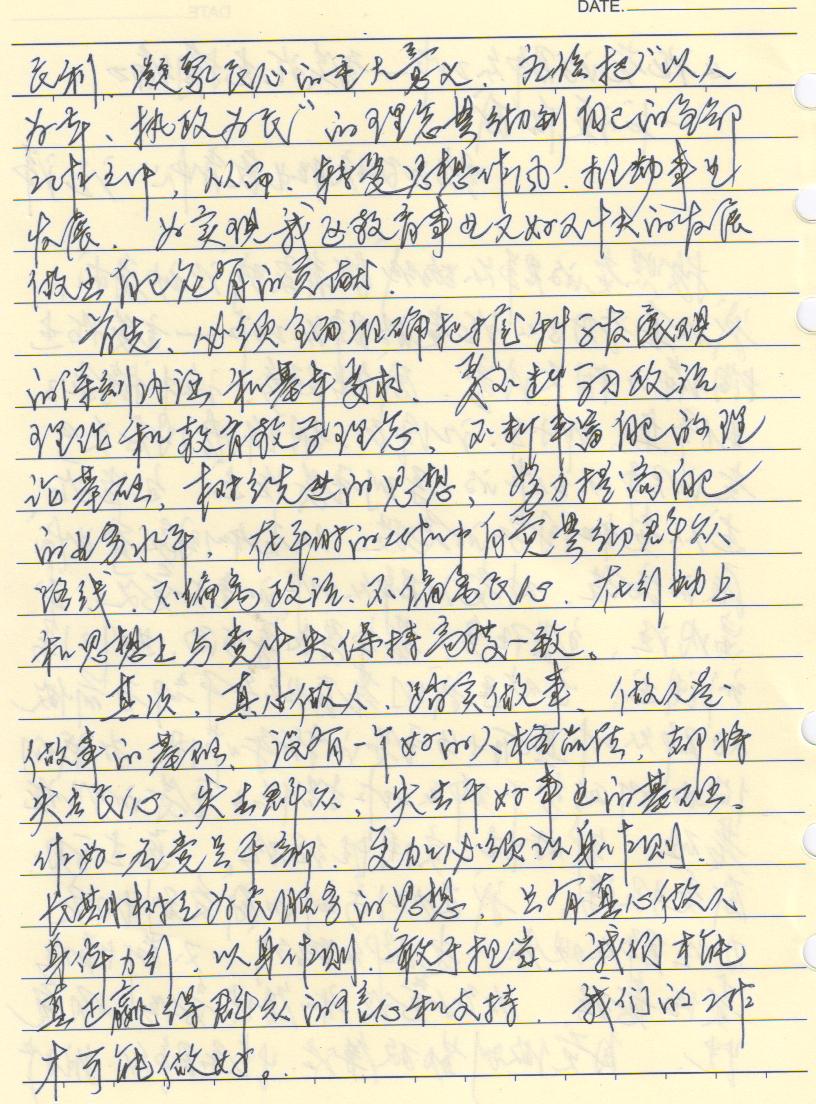 DATE.
民利、凝聚民心的重大意义。应该把"以人
为本、执政为民"的理念贯彻到自己的全部
工作之中,从而、转变思想作风、推动事业
发展。为实现我区教育事业又好又快的发展
做出自己应有的贡献。
首先、必须全面准确把握科学发展观
的深刻内涵和基本要求。要不断学习政治
理论和教育教学理念,不断丰富自己的理
论基础,树立先进的思想,努力提高自己
的业务水平,在平时的工作中自觉贯彻群众
路线、不偏离政治、不偏离民心、在行动上
和思想上与党中央保持高度一致。
其次、真心做人、踏实做事、做人是
做事的基础、没有一个好的人格品德,都将
失去民心、失去群众,失去干好事业的基础。
作为一名党员干部、更加必须以身作则、
长期树立为民服务的思想,只有真心做人
身体力行、以身作则、敢于担当、我们才能
真正赢得群众的信心和支持、我们的工作
才可能做好。